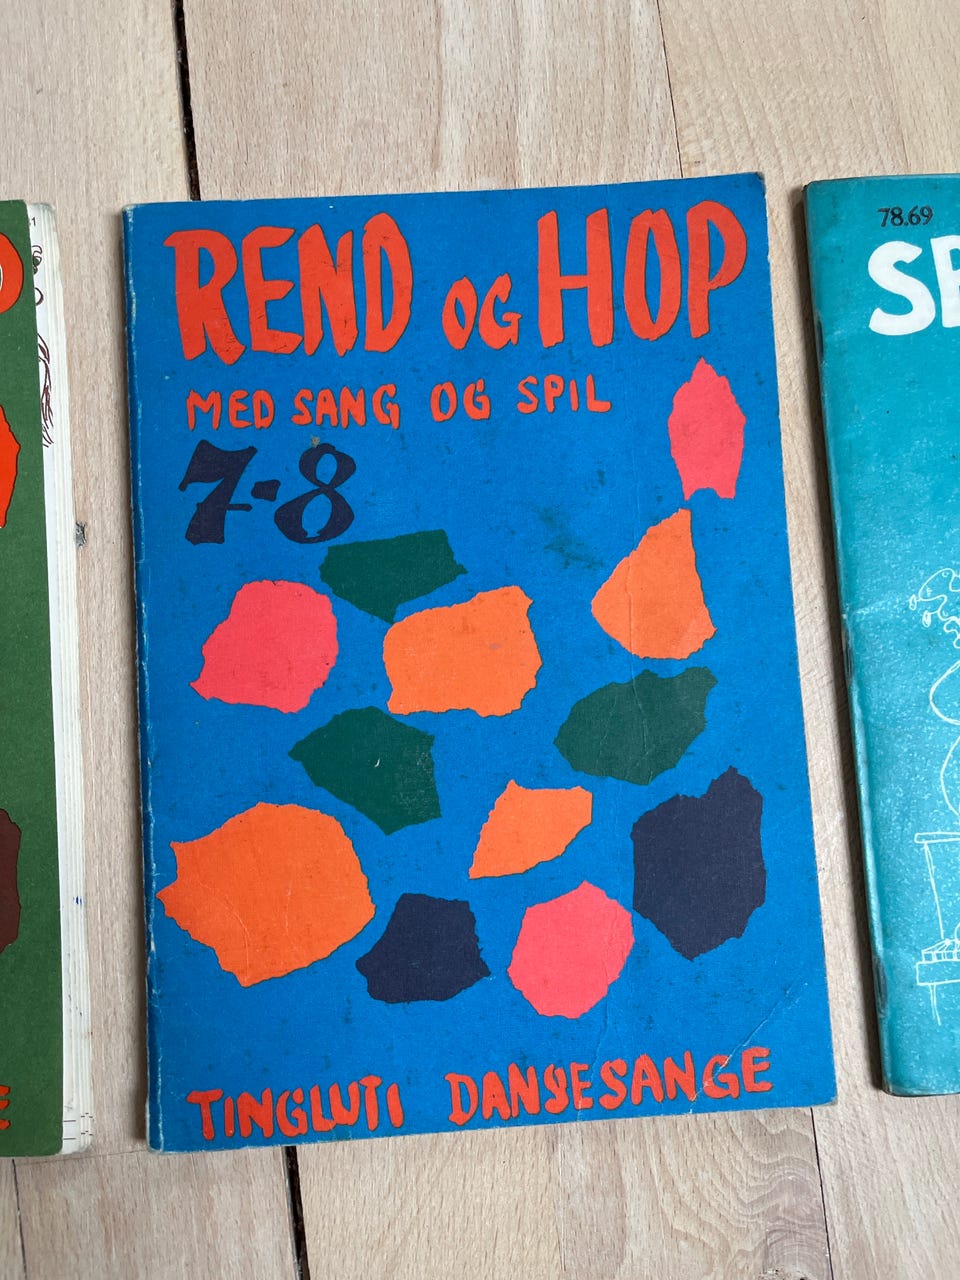 REND OG HOP
MED SANG OG SPIL
7-8
TINGLUTI DANSESANGE
78.69